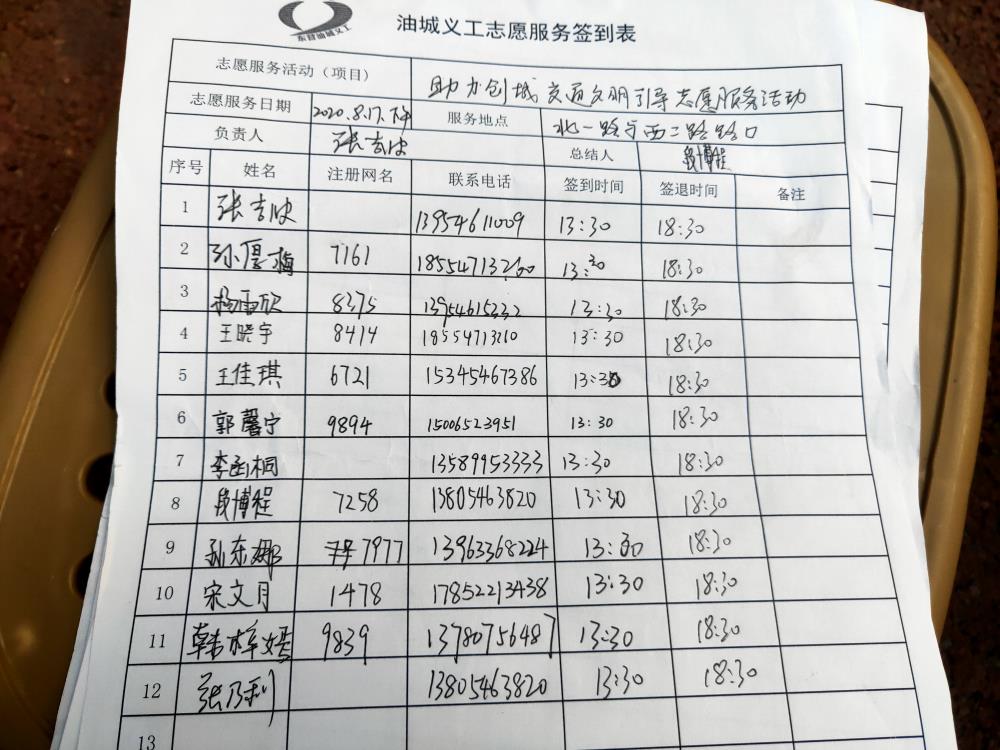 东营油城义工
油城义工志愿服务签到表
志愿服务活动（项目） 助力创城交通文明引导志愿服务活动
志愿服务日期 2020.8.17.下午 服务地点 北一路与西二路路口
负责人 张吉欣 总结人 段博程
序号 姓名 注册网名 联系电话 签到时间 签退时间 备注
1 张吉欣 13954611009 13:30 18:30
2 孙厚梅 7161 18554713260 13:30 18:30
3 杨雨欣 8375 13954615332 13:30 18:30
4 王晓宇 8414 18554713210 13:30 18:30
5 王佳琪 6721 15345467386 13:30 18:30
6 郭馨宁 9894 15006523951 13:30 18:30
7 李函桐 13589953333 13:30 18:30
8 段博程 7258 13805463820 13:30 18:30
9 孙东娜 7977 13963368224 13:30 18:30
10 宋文月 1478 17852213438 13:30 18:30
11 韩梓嫣 9839 13780756487 13:30 18:30
12 张乃利 13805463820 13:30 18:30
13